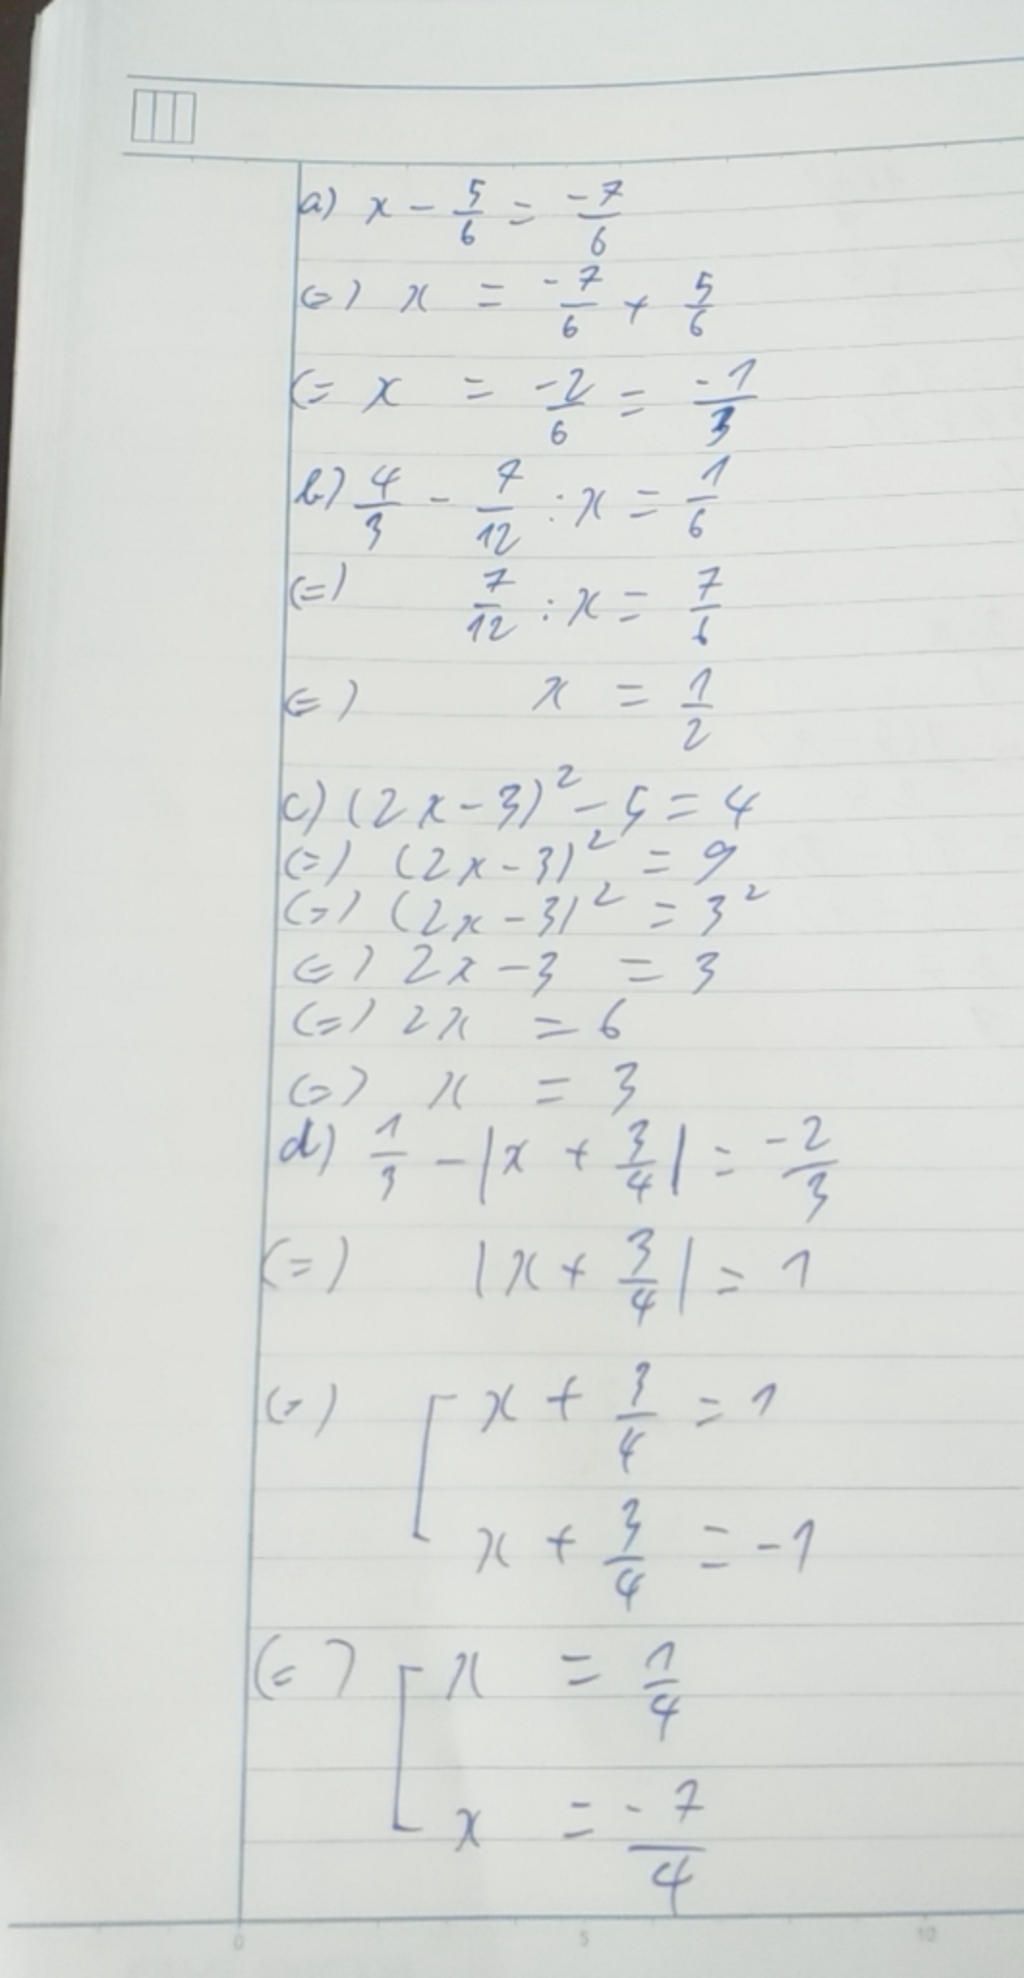 a) x - 5/6 = -7/6
(=) x = -7/6 + 5/6
(= x = -2/6 = -1/3
b) 4/3 - 7/12 : x = 1/6
(=) 7/12 : x = 7/6
(=) x = 1/2
c) (2x-3)² - 5 = 4
(=) (2x-3)² = 9
(=) (2x-3)² = 3²
(=) 2x-3 = 3
(=) 2x = 6
(=) x = 3
d) 1/3 - |x + 3/4| = -2/3
(=) |x + 3/4| = 1
(=) [ x + 3/4 = 1
x + 3/4 = -1
(=) [ x = 1/4
x = -7/4
0 5 10